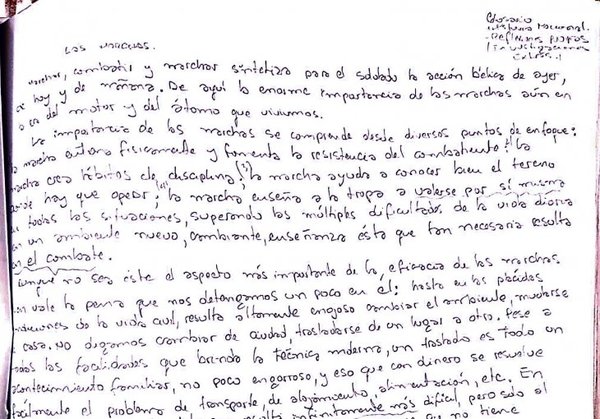 Glosario
Historia Nacional.
Reflexiones propias
Investigaciones
LAS MARCHAS.
marchar, combatir y marchar sintetiza para el soldado la acción bélica de ayer,
de hoy y de mañana. De aquí la enorme importancia de las marchas aún en
la era del motor y del átomo que vivimos.
La importancia de las marchas se comprende desde diversos puntos de enfoque:
la marcha entrena físicamente y fomenta la resistencia del combatiente; la
marcha crea hábitos de disciplina; la marcha ayuda a conocer bien el terreno
donde hay que operar; la marcha enseña a la tropa a valerse por sí misma
en todas las situaciones, superando las múltiples dificultades de la vida diaria
en un ambiente nuevo, cambiante, enseñanza ésta que tan necesaria resulta
en el combate.
Aunque no sea éste el aspecto más importante de la eficacia de las marchas
bien vale la pena que nos detengamos un poco en él: hasta en las plácidas
condiciones de la vida civil, resulta altamente enojoso cambiar el ambiente, mudarse
de casa. No digamos cambiar de ciudad, trasladarse de un lugar a otro. Pese a
todas las facilidades que brinda la técnica moderna, un traslado es todo un
acontecimiento familiar, no poco engorroso, y eso que con dinero se resuelve
fácilmente el problema de transporte, de alojamiento, alimentación, etc. En
resulta infinitamente más difícil, pero sólo al
no tiene